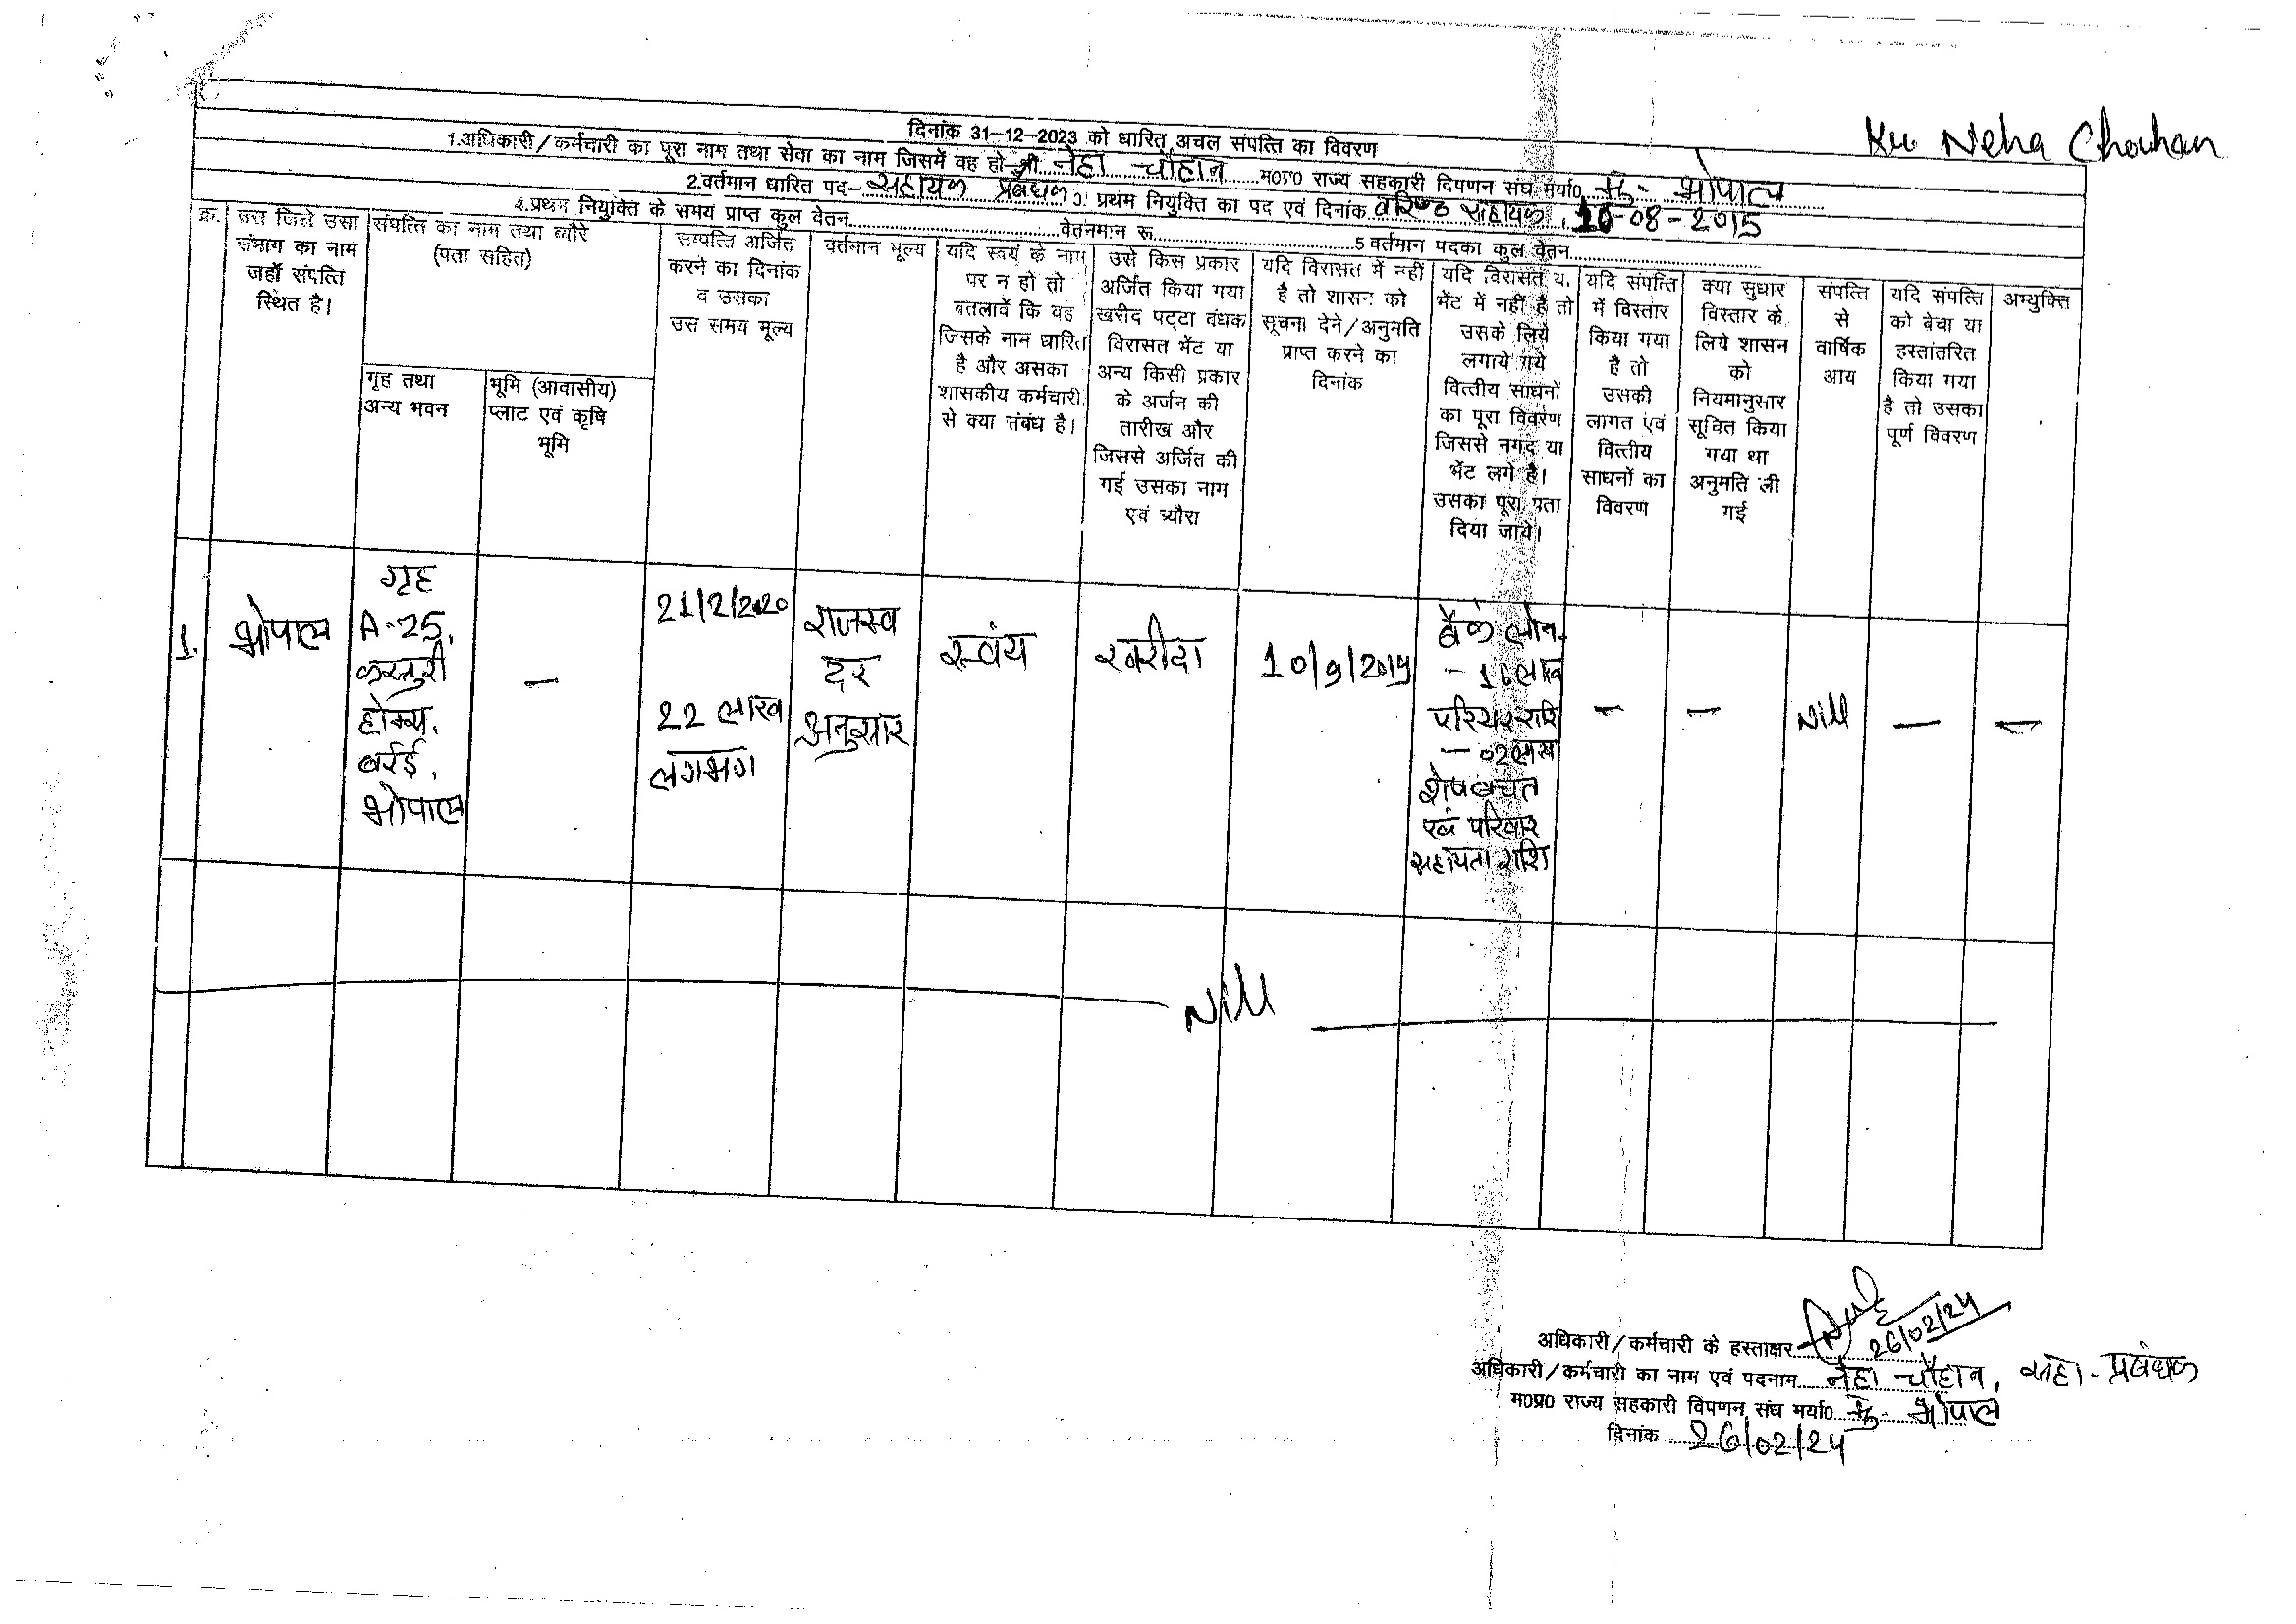 Ku Neha Chouhan
दिनांक 31-12-2023 को धारित अचल संपत्ति का विवरण
1.अधिकारी/कर्मचारी का पूरा नाम तथा सेवा का नाम जिसमें वह हो-श्री नेहा चौहान म०प्र० राज्य सहकारी विपणन संघ मर्या० मु- भोपाल
2.वर्तमान धारित पद- सहायक प्रबंधक 3. प्रथम नियुक्ति का पद एवं दिनांक वरिष्ठ सहायक, 10-08-2015
4.प्रथम नियुक्ति के समय प्राप्त कुल वेतन वेतनमान रू 5 वर्तमान पदका कुल वेतन
क्र.
उस जिले उसा
संभाग का नाम
जहाँ संपत्ति
स्थित है।
संपत्ति का नाम तथा ब्यौरे
(पता सहित)
गृह तथा
अन्य भवन
भूमि (आवासीय)
प्लाट एवं कृषि
भूमि
सम्पत्ति अर्जित
करने का दिनांक
व उसका
उस समय मूल्य
वर्तमान मूल्य
यदि स्वयं के नाम
पर न हो तो
बतलावें कि वह
जिसके नाम धारित
है और असका
शासकीय कर्मचारी
से क्या संबंध है।
उसे किस प्रकार
अर्जित किया गया
खरीद पट्टा बंधक
विरासत भेंट या
अन्य किसी प्रकार
के अर्जन की
तारीख और
जिससे अर्जित की
गई उसका नाम
एवं ब्यौरा
यदि विरासत में नहीं
है तो शासन को
सूचना देने/अनुमति
प्राप्त करने का
दिनांक
यदि विरासत य.
भेंट में नहीं है तो
उसके लिये
लगाये गये
वित्तीय साधनों
का पूरा विवरण
जिससे नगद या
भेंट लगे है।
उसका पूरा पता
दिया जाये।
यदि संपत्ति
में विस्तार
किया गया
है तो
उसकी
लागत एवं
वित्तीय
साधनों का
विवरण
क्या सुधार
विस्तार के
लिये शासन
को
नियमानुसार
सूचित किया
गया था
अनुमति ली
गई
संपत्ति
से
वार्षिक
आय
यदि संपत्ति
को बेचा या
हस्तांतरित
किया गया
है तो उसका
पूर्ण विवरण
अभ्युक्ति
1.
भोपाल
गृह
A-25,
कस्तुरी
होम्स,
बर्रई,
भोपाल
—
21/2/2020
22 लाख
लगभग
राजस्व
दर
अनुसार
स्वंय
खरीदा
10/9/2019
बैंक लोन
- 16 लाख
- 02 लाख
शेष बचत
एवं परिवार
सहायता राशि
—
—
Nill
—
—
Nill
अधिकारी/कर्मचारी के हस्ताक्षर 26/02/24
अधिकारी/कर्मचारी का नाम एवं पदनाम नेहा चौहान, सहा- प्रबंधक
म०प्र० राज्य सहकारी विपणन संघ मर्या० मु- भोपाल
दिनांक 26/02/24